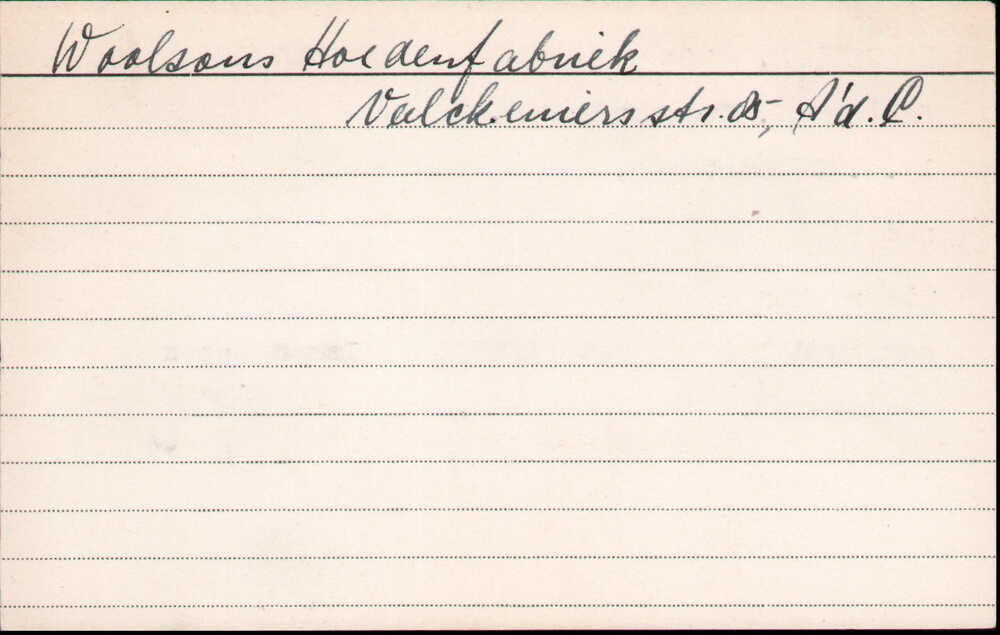 Woolsons Hoedenfabriek
Valckeniersstr. 85, A'd. C.